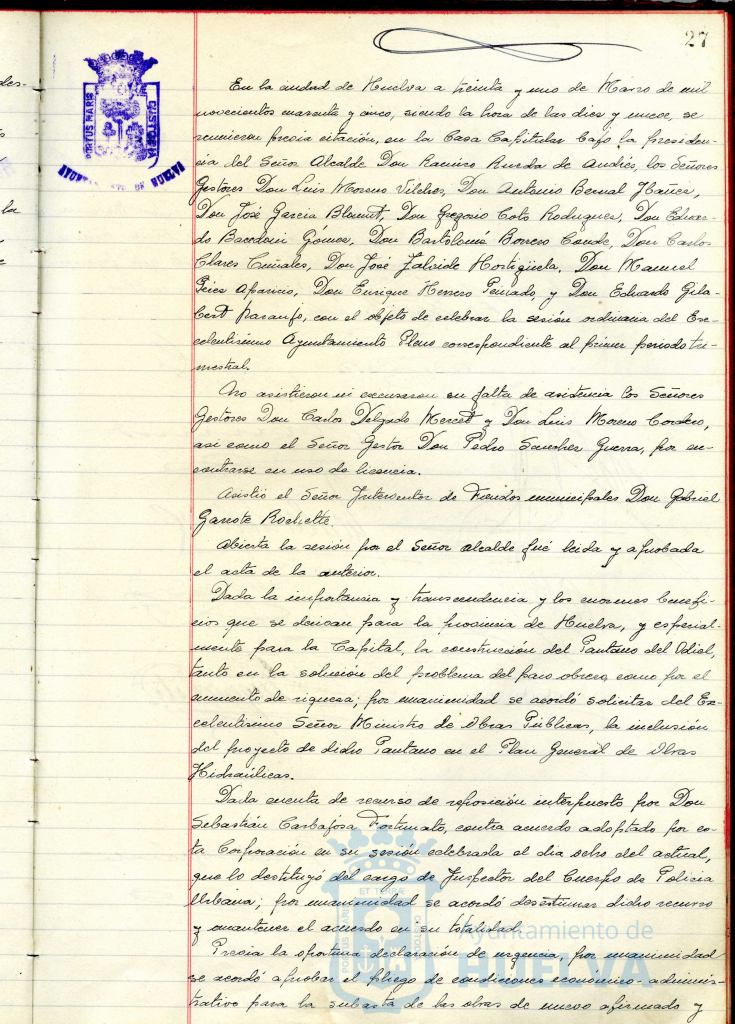 27
PORTUS MARIS
CUSTODIA
AYUNTAMIENTO DE HUELVA
En la ciudad de Huelva a treinta y uno de Marzo de mil
novecientos cuarenta y cinco, siendo la hora de las diez y nueve, se
reunieron previa citación, en la Casa Capitular bajo la presiden-
cia del Señor Alcalde Don Ramiro de los Señores
Gestores Don Luis Moreno Vilches, Don Antonio Bernal Ibáñez,
Don José García Don Gregorio Coto Rodriguez, Don Eduar-
do Gómez, Don Bartolomé Borrero Conde, Don Carlos
Clares Don José Don Manuel
Perez Aparicio, Don Enrique Herrero y Don Eduardo Gila-
bert con el objeto de celebrar la sesión ordinaria del Ex-
celentísimo Ayuntamiento Pleno correspondiente al primer periodo tri-
mestral.
No asistieron ni excusaron su falta de asistencia los Señores
Gestores Don Carlos Delgado y Don Luis Moreno Cordero,
asi como el Señor Gestor Don Pedro Sanchez Guerra, por en-
contrarse en uso de licencia.
Asistió el Señor Interventor de Fondos municipales Don Gabriel
Garrote
Abierta la sesión por el Señor alcalde fué leida y aprobada
el acta de la anterior.
Dada la importancia y transcendencia y los enormes benefi-
cios que se derivan para la provincia de Huelva, y especial-
mente para la Capital, la construcción del Pantano del Odiel,
tanto en la solución del problema del paro obrero, como por el
aumento de riqueza; por unanimidad se acordó solicitar del Ex-
celentísimo Señor Ministro de Obras Públicas, la inclusión
del proyecto de dicho Pantano en el Plan General de Obras
Hidraúlicas.
Dada cuenta de recurso de reposición interpuesto por Don
Sebastián Carbajosa Fortunato, contra acuerdo adoptado por es-
ta Corporación en su sesión celebrada el dia ocho del actual,
que lo destituyó del cargo de Inspector del Cuerpo de Policia
Urbana; por unanimidad se acordó desestimar dicho recurso
y mantener el acuerdo en su totalidad.
Previa la oportuna declaración de urgencia, por unanimidad
se acordó aprobar el pliego de condiciones económico-adminis-
trativo para la subasta de las obras de nuevo afirmado y
ET TERRE
PORTUS MARIS
CUSTODIA
Ayuntamiento de
HUELVA